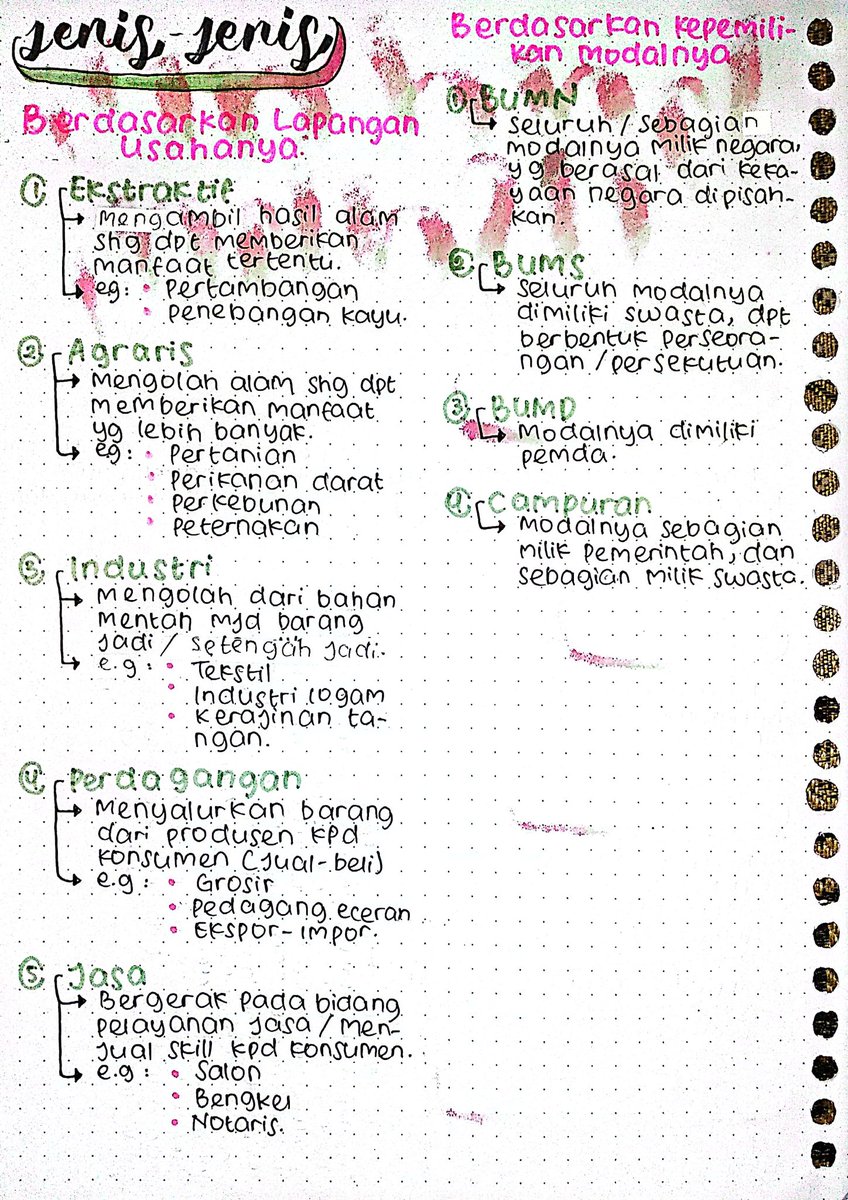 Jenis-Jenis
Berdasarkan Lapangan
Usahanya.
① Ekstraktif
→ mengambil hasil alam
shg dpt memberikan
manfaat tertentu.
→ eg: • Pertambangan
• Penebangan kayu.
② Agraris
→ Mengolah alam shg dpt
memberikan manfaat
yg lebih banyak.
→ eg: • Pertanian
• Perikanan darat
• Perkebunan
• Peternakan
③ Industri
→ Mengolah dari bahan
mentah mjd barang
jadi / setengah jadi.
→ e.g: • Tekstil
• Industri logam
• Kerajinan ta-
ngan.
④ Perdagangan
→ Menyalurkan barang
dari produsen kpd
konsumen (jual-beli)
→ e.g: • Grosir
• Pedagang eceran
• Ekspor-impor.
⑤ Jasa
→ Bergerak pada bidang
pelayanan jasa / men-
jual skill kpd konsumen.
→ e.g: • Salon
• Bengkel
• Notaris.
Berdasarkan Kepemili-
kan Modalnya
① BUMN
→ Seluruh / sebagian
modalnya milik negara,
yg berasal dari keka-
yaan negara dipisah-
kan.
② BUMS
→ Seluruh modalnya
dimiliki swasta, dpt
berbentuk perseora-
ngan / persekutuan.
③ BUMD
→ Modalnya dimiliki
pemda.
④ Campuran
→ Modalnya sebagian
milik pemerintah, dan
sebagian milik swasta.